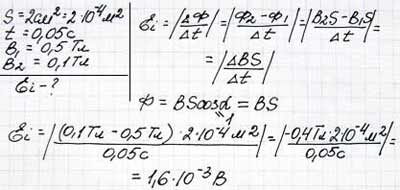 S = 2см² = 2·10⁻⁴м²
t = 0,05с
B₁ = 0,5 Тл
B₂ = 0,1 Тл
Ei - ?
Ei = |ΔФ/Δt| = |Ф₂-Ф₁/Δt| = |B₂S-B₁S/Δt| =
= |ΔBS/Δt|
Ф = BScosα = BS
1
Ei = |(0,1Тл - 0,5Тл)·2·10⁻⁴м²/0,05с| = |-0,4Тл·2·10⁻⁴м²/0,05с| =
= 1,6·10⁻³ В